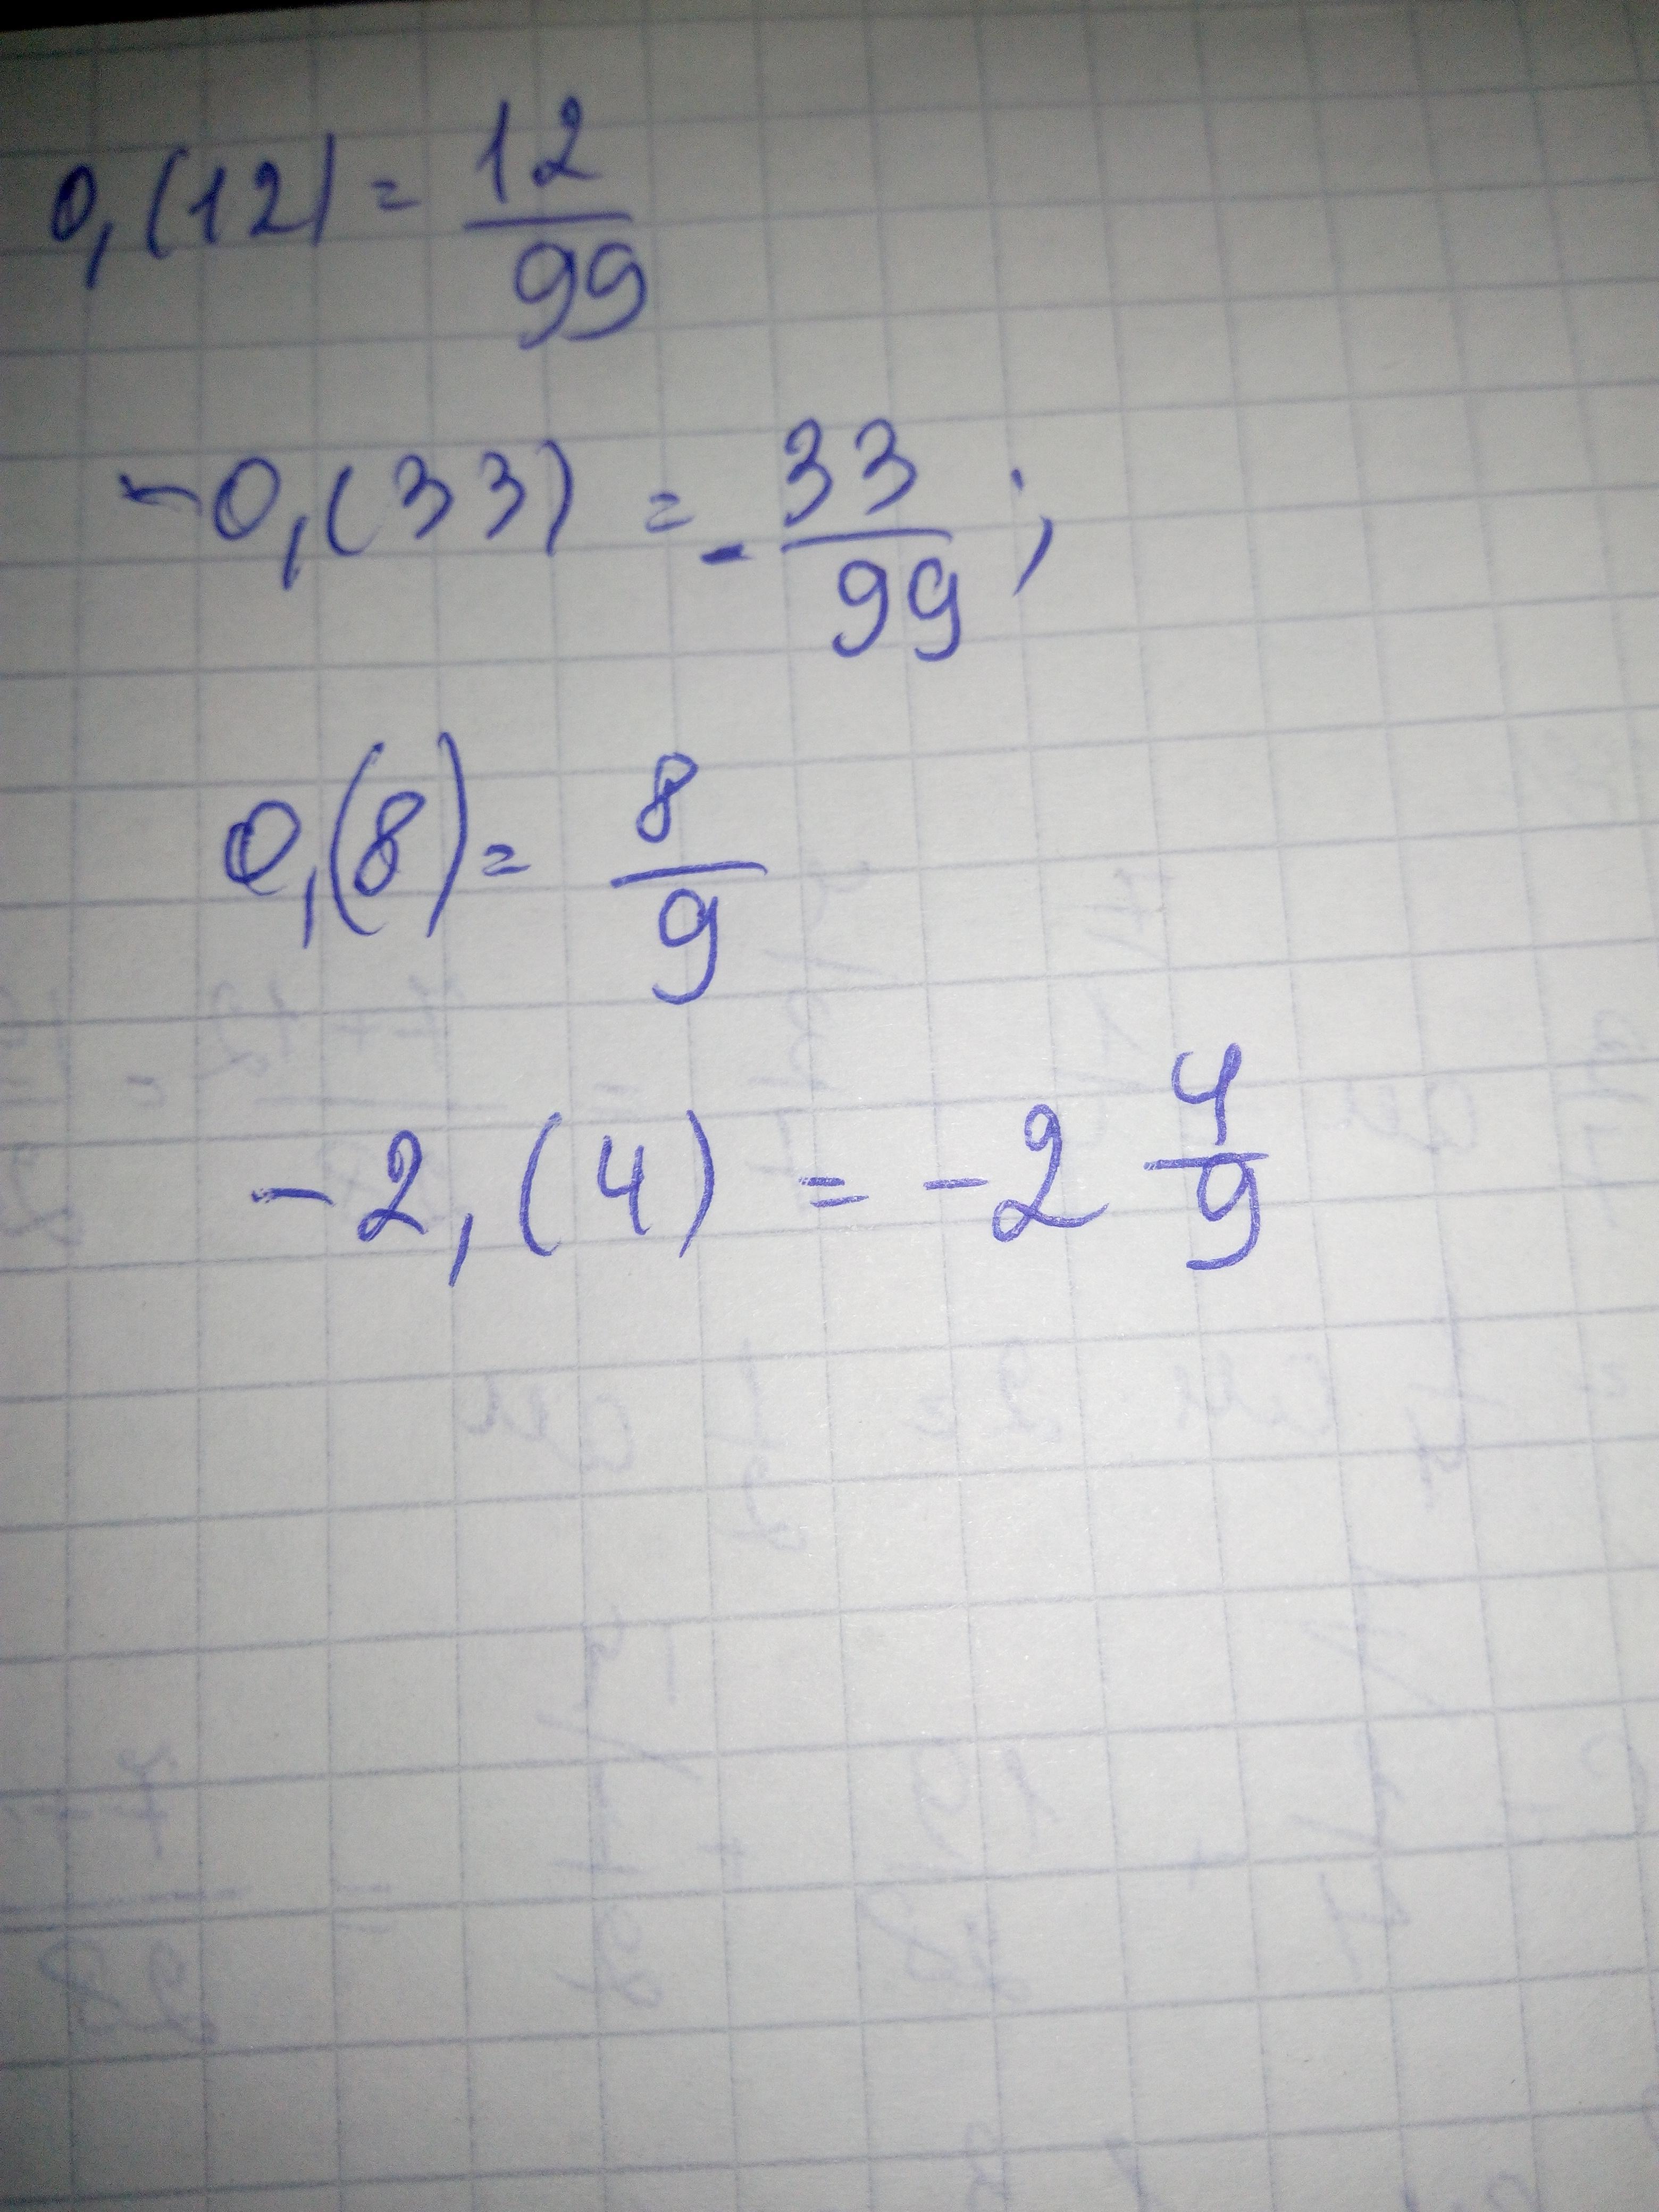 0,(12) = 12/99
-0,(33) = - 33/99 ;
0,(8) = 8/9
-2,(4) = -2 4/9